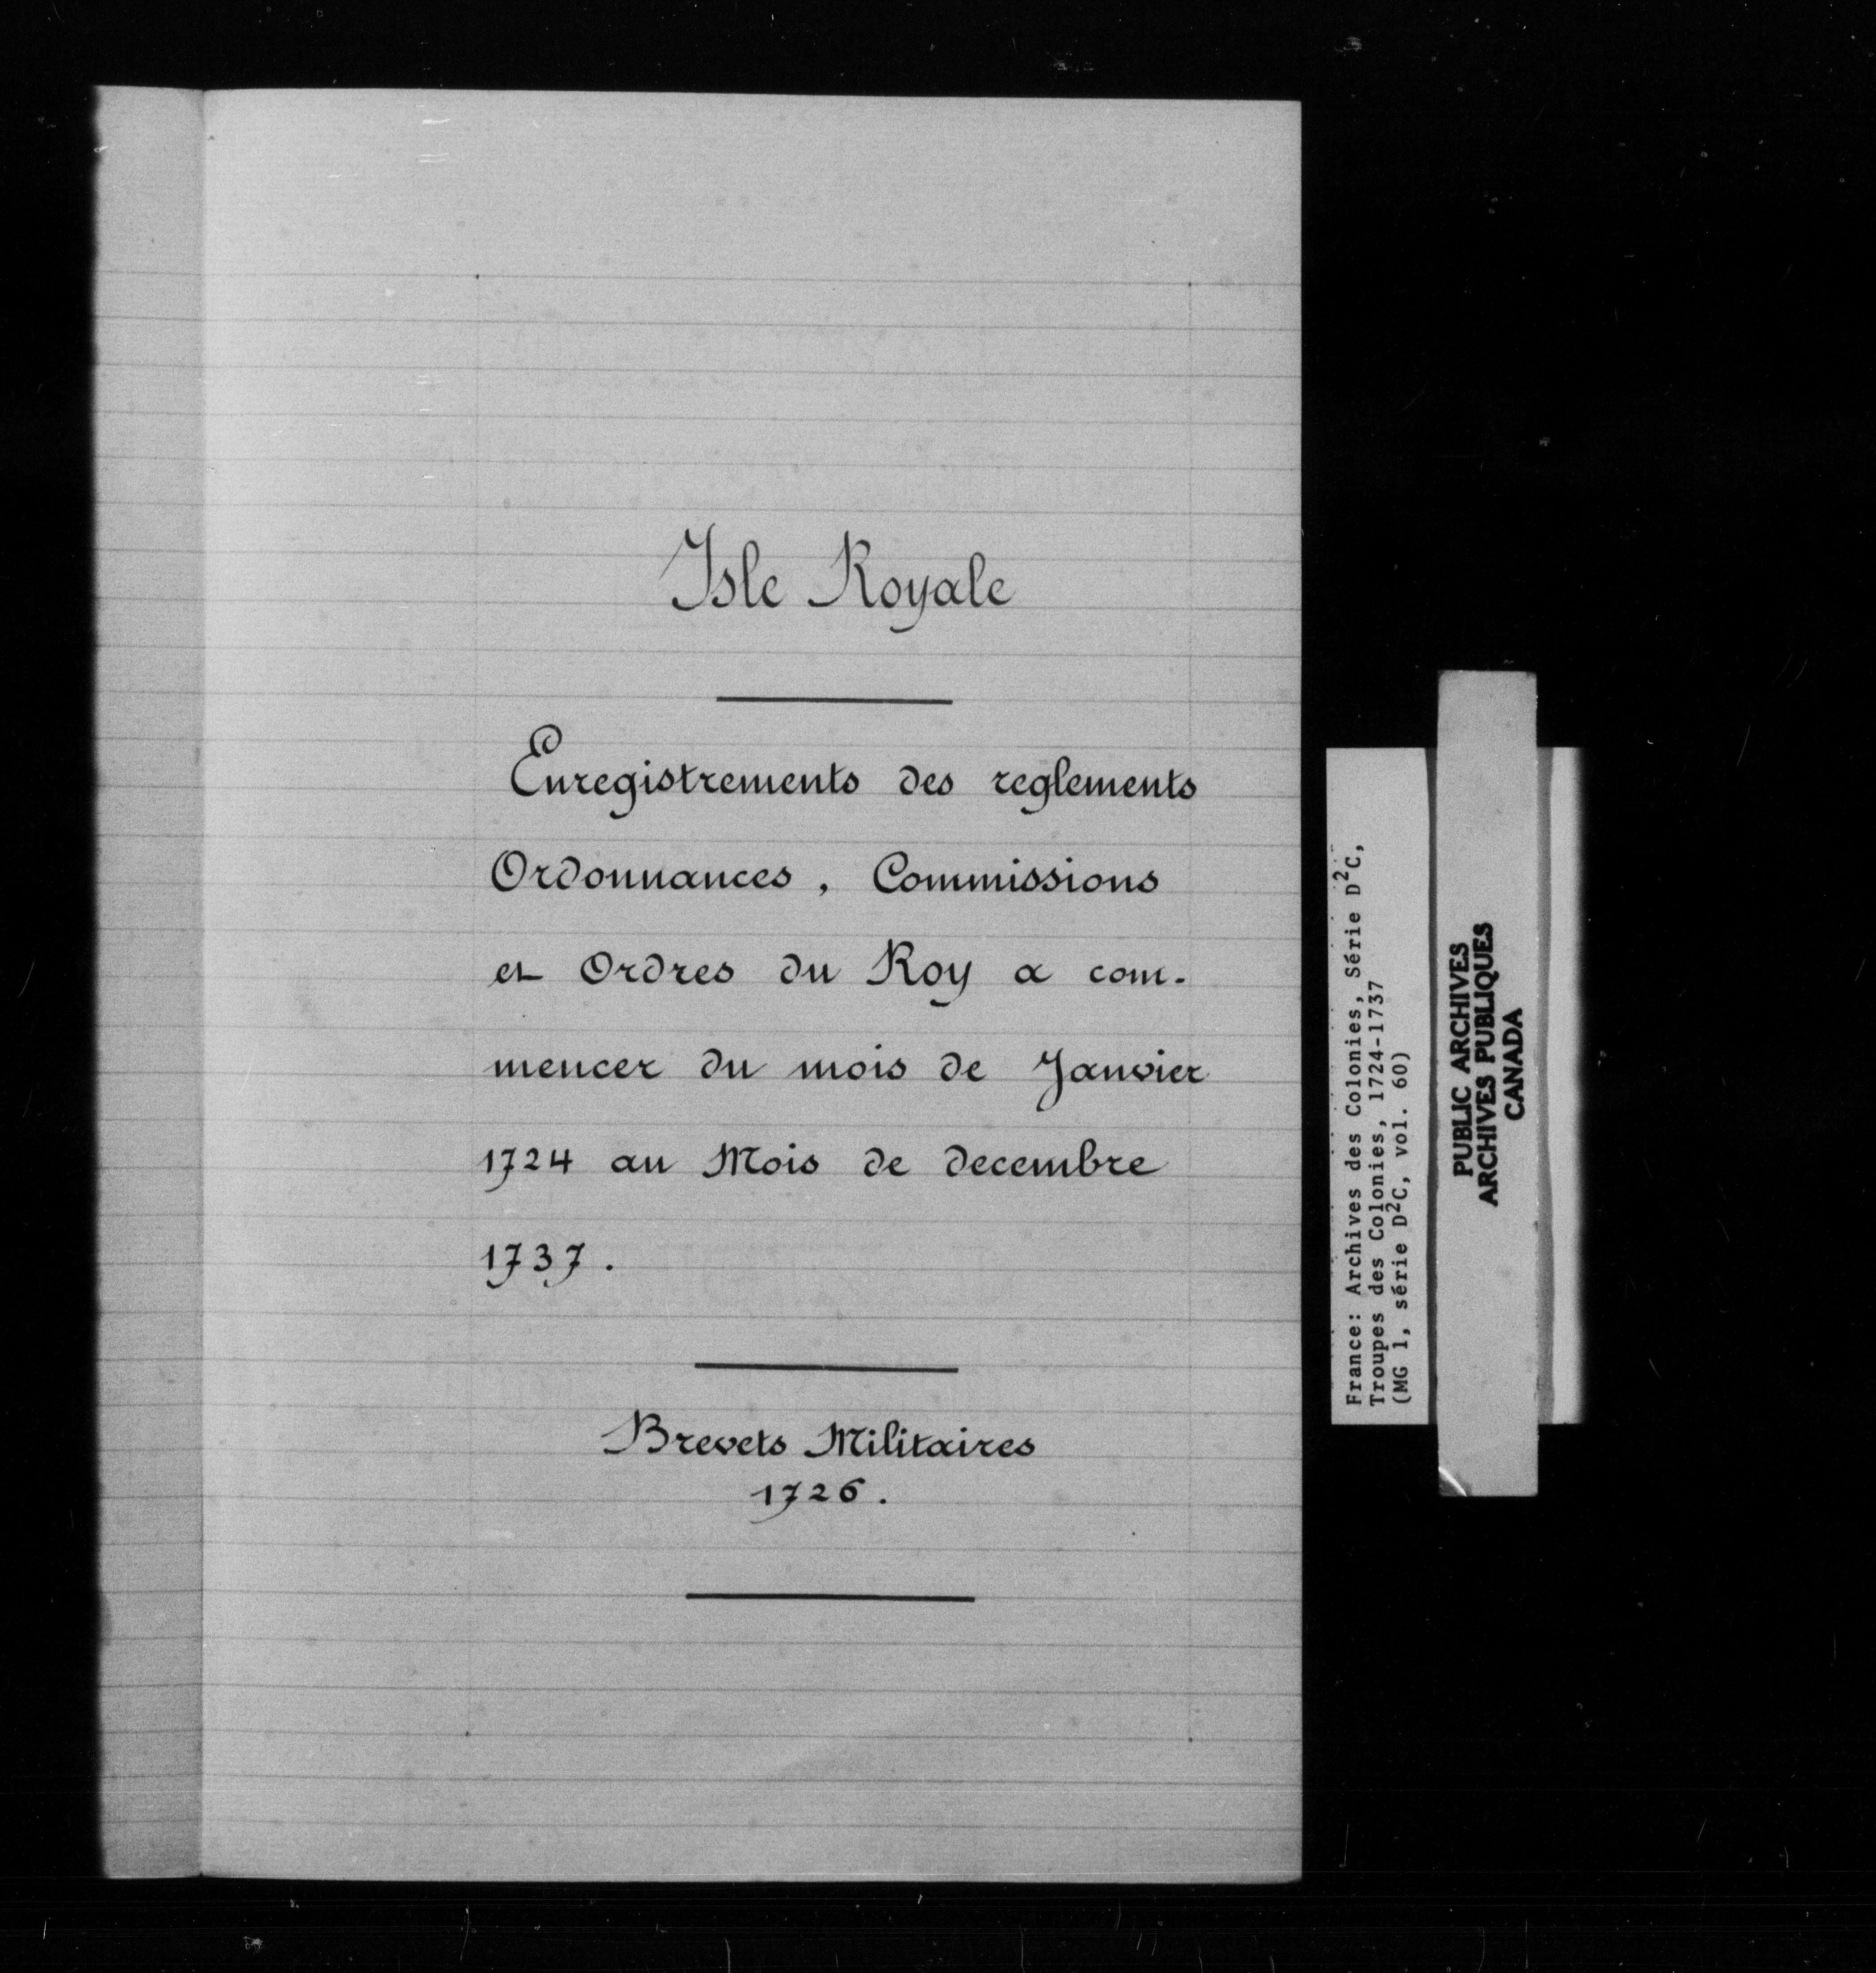 Isle Royale
Enregistrements des reglements
Ordonnances, Commissions
et Ordres du Roy a com-
mencer du mois de Janvier
1724 au Mois de decembre
1737.
Brevets Militaires
1726.
France: Archives des Colonies, Série D²C,
Troupes des Colonies, 1724-1737
(MG 1, série D²C, vol. 60)
PUBLIC ARCHIVES
ARCHIVES PUBLIQUES
CANADA